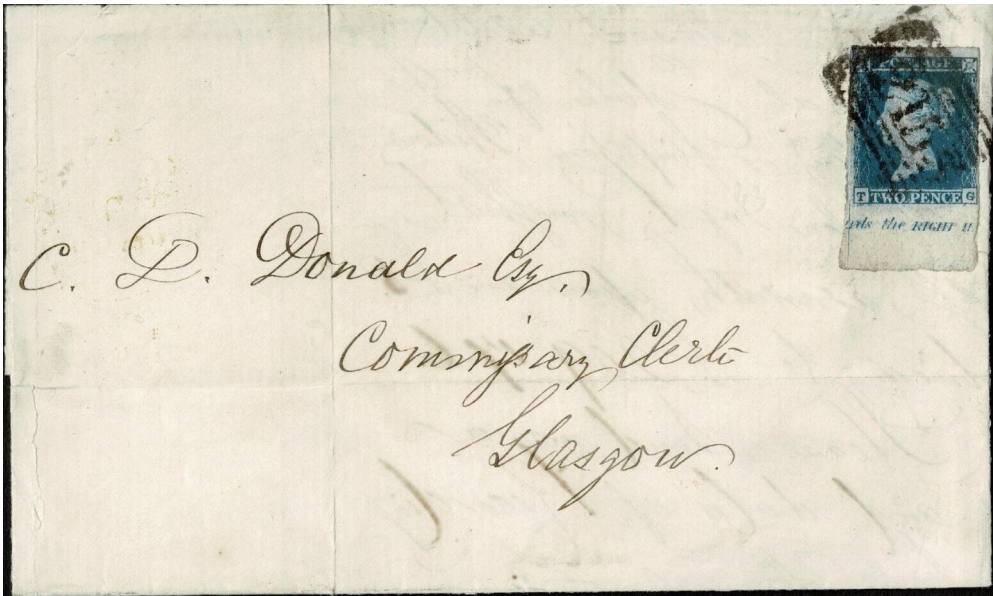 POSTAGE
T TWO PENCE G
rds the RIGHT H
C. D. Donald Esq.
Commissary Clerk
Glasgow.